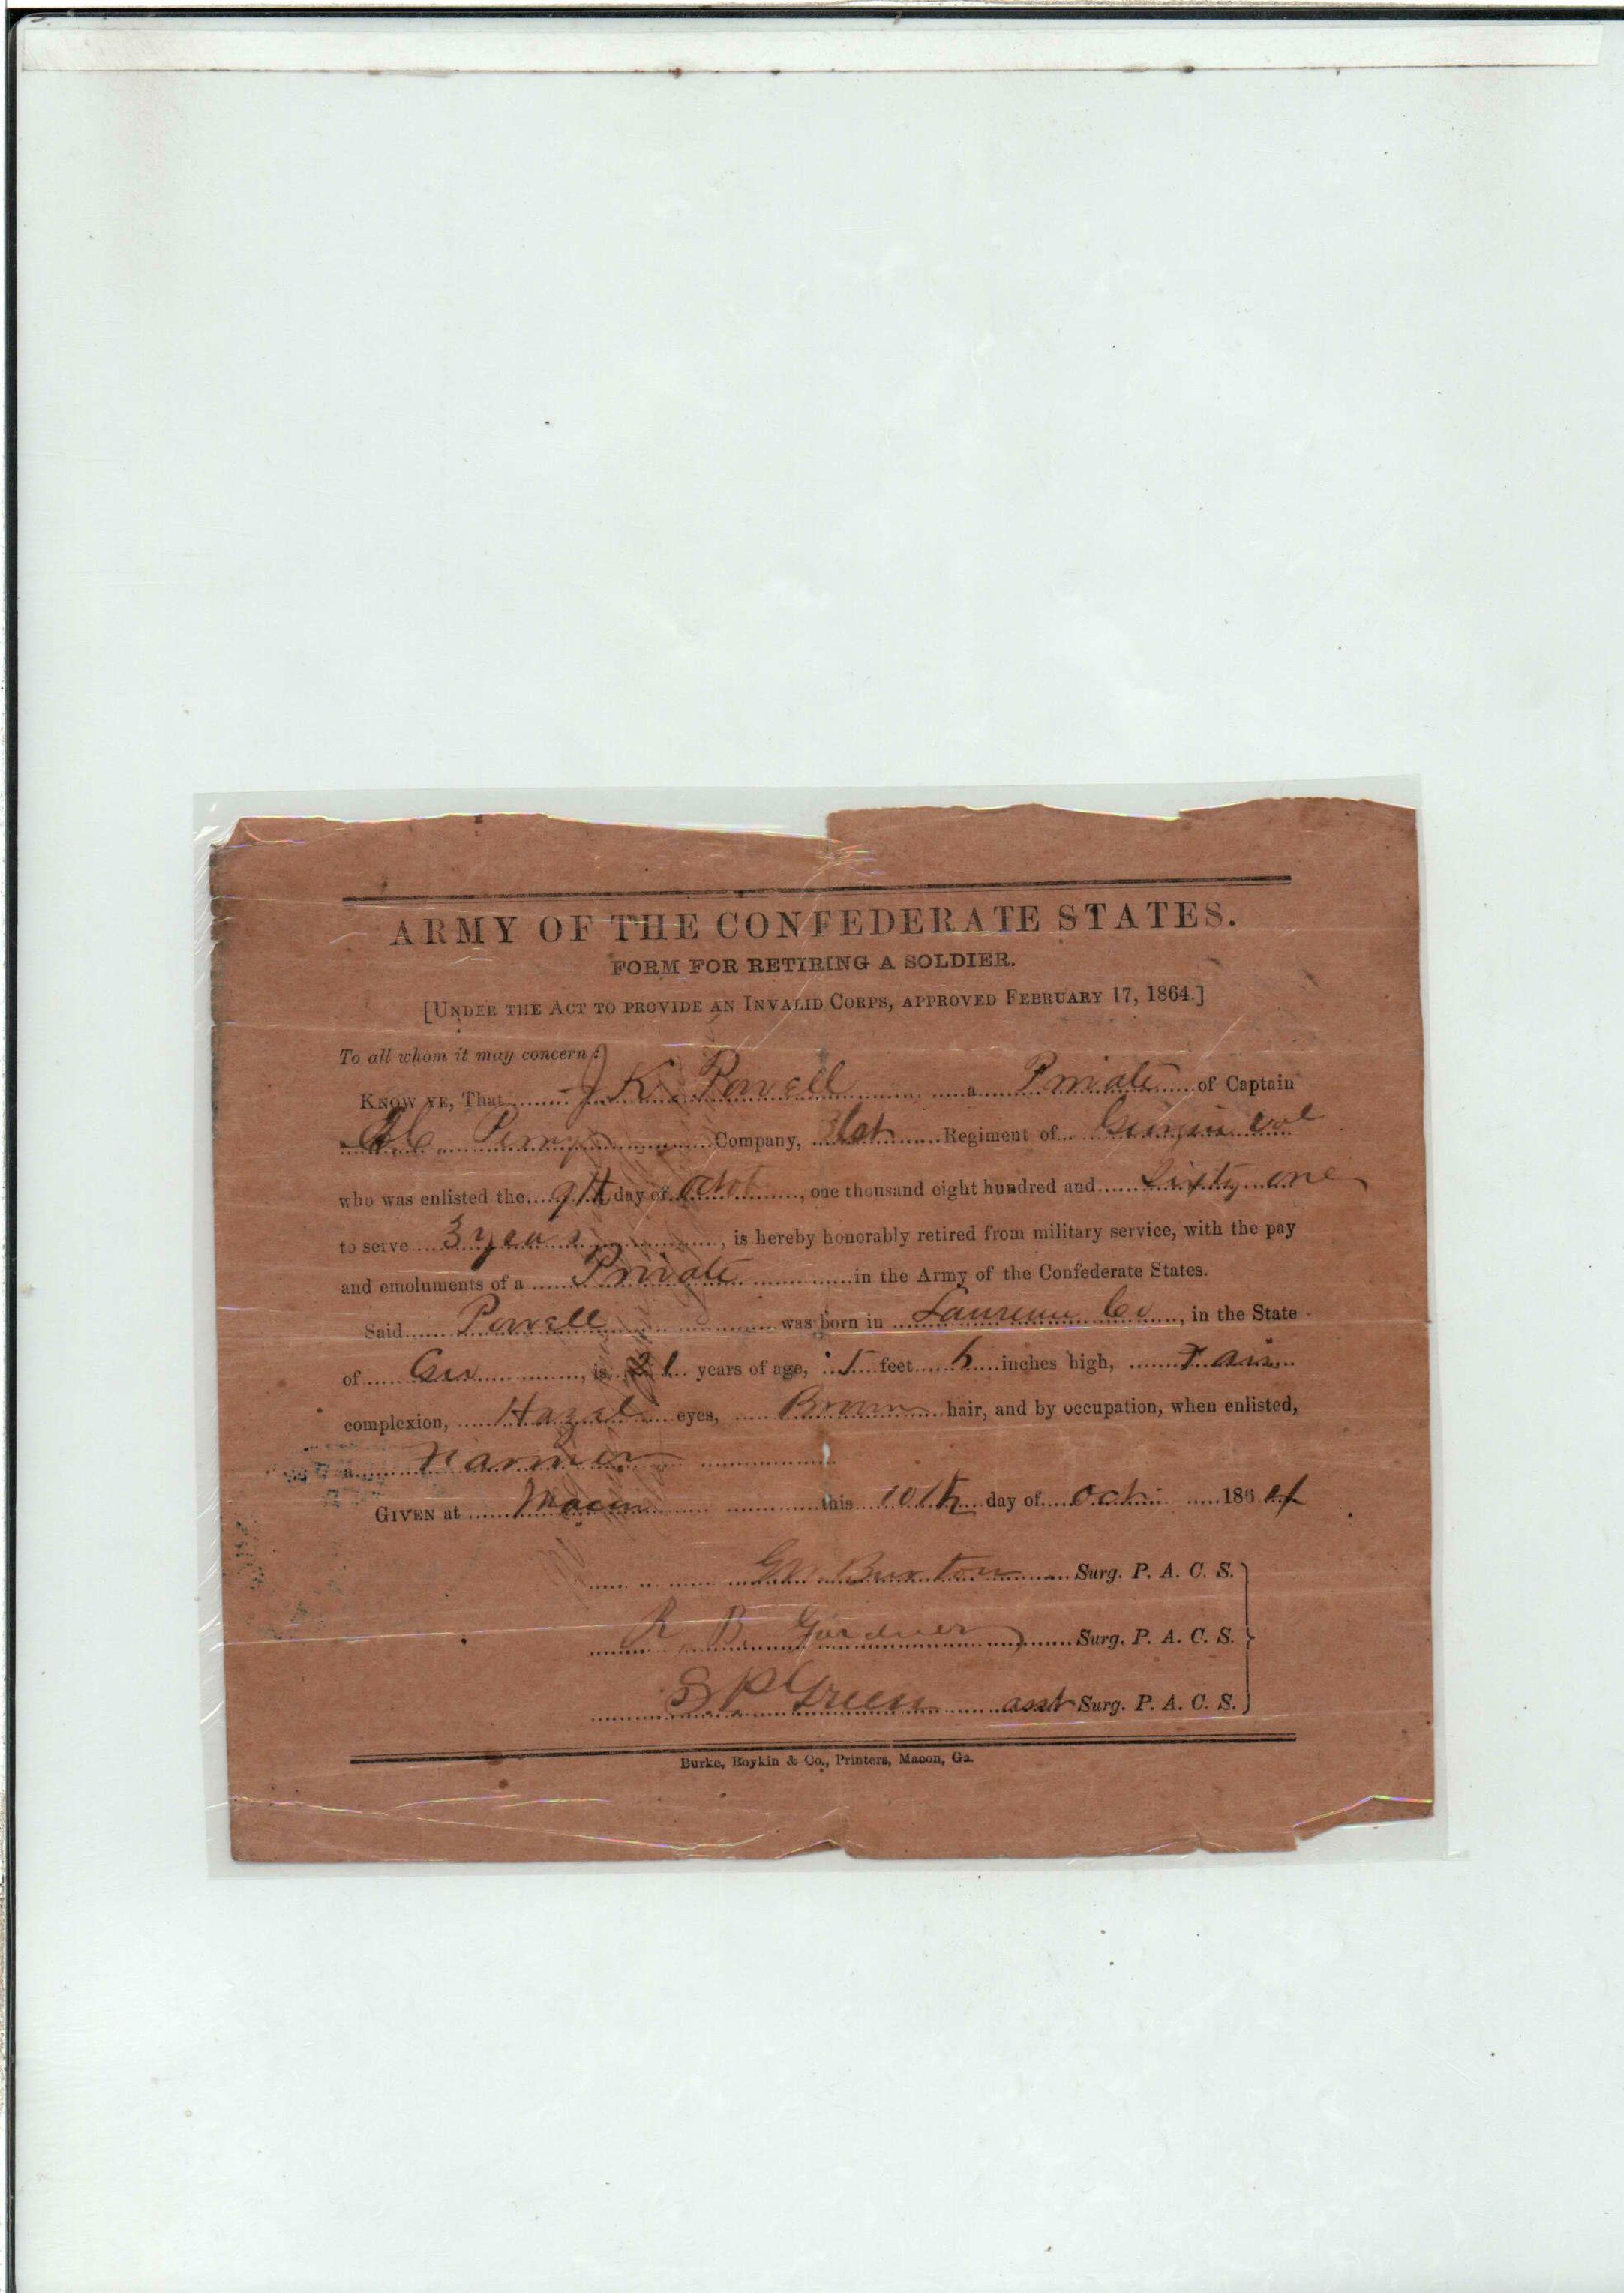 ARMY OF THE CONFEDERATE STATES.
FORM FOR RETIRING A SOLDIER.
[UNDER THE ACT TO PROVIDE AN INVALID CORPS, APPROVED FEBRUARY 17, 1864.]
To all whom it may concern:
KNOW YE, That J K Powell a Private of Captain
Perry Company, Regiment of
who was enlisted the 9th day of Oct, one thousand eight hundred and Sixty one
to serve 3 years, is hereby honorably retired from military service, with the pay
and emoluments of a Private in the Army of the Confederate States.
Said Powell was born in Laurens Co, in the State
of Geo, is 21 years of age, 5 feet 6 inches high, Fair
complexion, Hazel eyes, Brown hair, and by occupation, when enlisted,
a Farmer
GIVEN at Macon this 10th day of Oct. 1864
Burton Surg. P. A. C. S.
R B Gardner Surg. P. A. C. S.
S P Green asst Surg. P. A. C. S.
Burke, Boykin & Co., Printers, Macon, Ga.